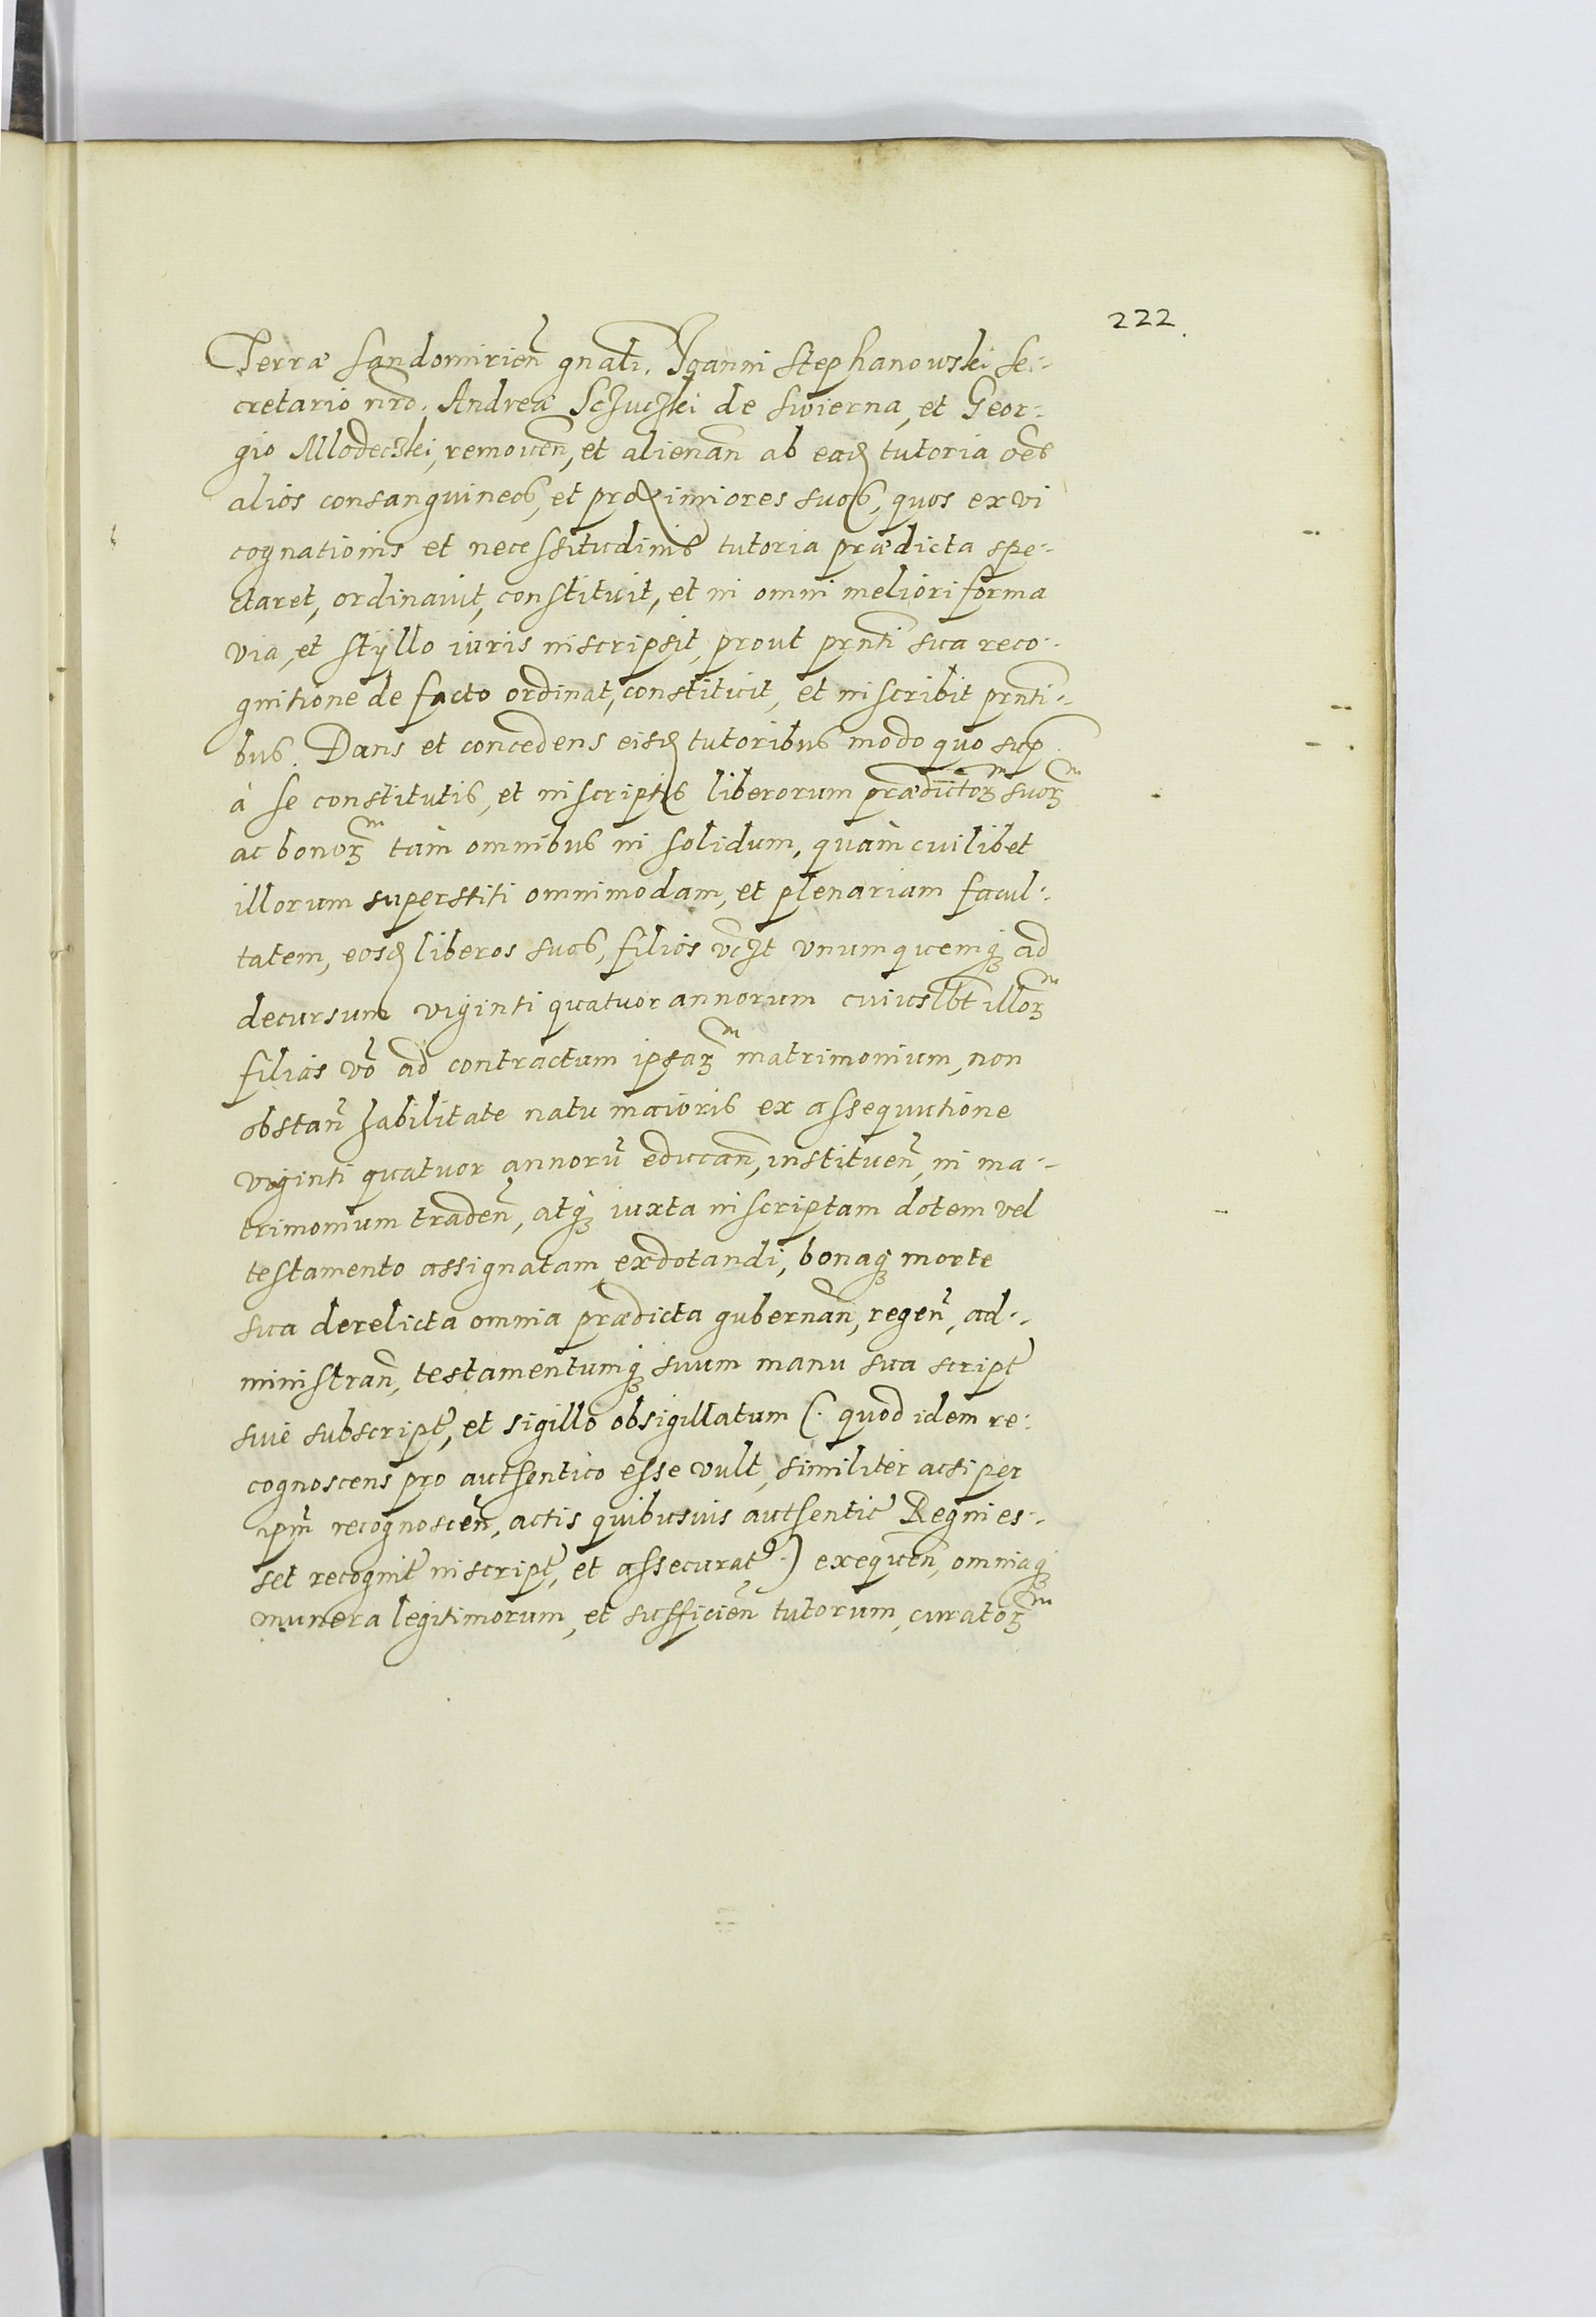 222.
Terræ Sandomirien̄ gnali. Joanni Stephanowski Se-
cretario nr̄o. Andreæ Sczuczki de Swierna, et Geor-
gio Mlodeczki, removen̄, et alienan̄ ab ead tutoria oēs
alios consanguineos, et proximiores suos, quos ex vi
cognationis et necessitudinis tutoria prædicta spe-
ctaret, ordinavit, constituit, et in omni meliori forma
via, et styllo iuris inscripsit, prout pr̄nti sua reco-
gnitione de facto ordinat, constituit, et inscribit pr̄nti-
bus. Dans et concedens eisd tutoribus modo quo sup
à se constitutis, et inscriptis liberorum prædictorꝝ suorꝝ
ac bonorꝝ tàm omnibus in solidum, quàm cuilibet
illorum superstiti omnimodam, et plenariam facul-
tatem, eosd liberos suos, filios vczt unumquemqꝫ ad
decursum viginti quatuor annorum cuiuslbt illorꝝ
filias vō ad contractum ipsarꝝ matrimonium, non
obstan̄ habilitate natu maioris ex assequutione
viginti quatuor annorū educan̄, instituen̄, in ma-
trimonium traden̄, atqꝫ iuxta inscriptam dotem vel
testamento assignatam exdotandi, bonaqꝫ morte
sua derelicta omnia prædicta gubernan̄, regen̄, ad-
ministran̄, testamentumqꝫ suum manu sua script
sive subscript, et sigillo obsigillatum (. quod idem re-
cognoscens pro authentico esse vult, similiter acsi per
ipm̄ recognoscen̄, actis quibusvis authentic Regni es-
set recognit inscript, et assecurat.) exequen̄, omniaqꝫ
munera legitimorum, et sufficien̄ tutorum, curatorꝝ